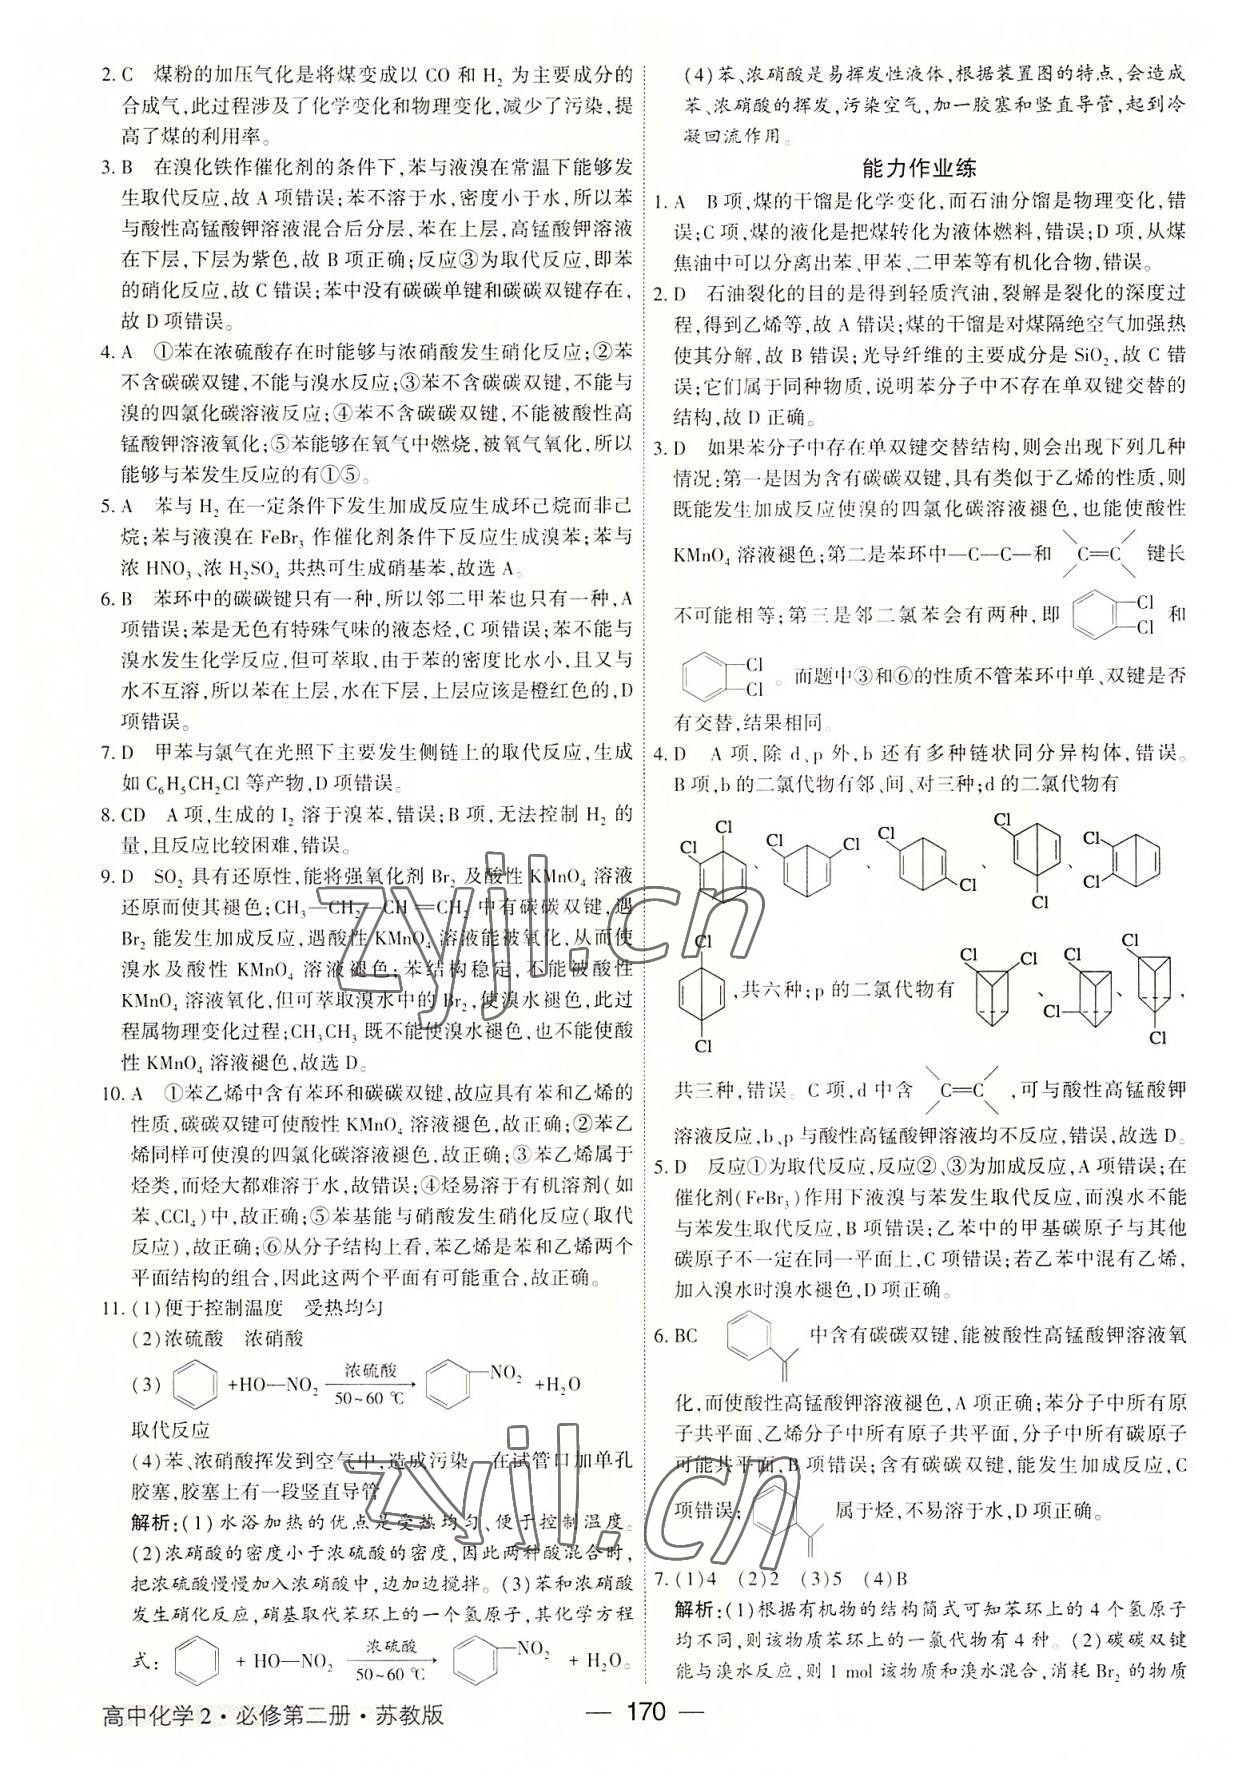 2. C　煤粉的加压气化是将煤变成以 CO 和 H₂ 为主要成分的
合成气,此过程涉及了化学变化和物理变化,减少了污染,提
高了煤的利用率。
3. B　在溴化铁作催化剂的条件下,苯与液溴在常温下能够发
生取代反应,故 A 项错误;苯不溶于水,密度小于水,所以苯
与酸性高锰酸钾溶液混合后分层,苯在上层,高锰酸钾溶液
在下层,下层为紫色,故 B 项正确;反应③为取代反应,即苯
的硝化反应,故 C 错误;苯中没有碳碳单键和碳碳双键存在,
故 D 项错误。
4. A　①苯在浓硫酸存在时能够与浓硝酸发生硝化反应;②苯
不含碳碳双键,不能与溴水反应;③苯不含碳碳双键,不能与
溴的四氯化碳溶液反应;④苯不含碳碳双键,不能被酸性高
锰酸钾溶液氧化;⑤苯能够在氧气中燃烧,被氧气氧化,所以
能够与苯发生反应的有①⑤。
5. A　苯与 H₂ 在一定条件下发生加成反应生成环己烷而非己
烷;苯与液溴在 FeBr₃ 作催化剂条件下反应生成溴苯;苯与
浓 HNO₃、浓 H₂SO₄ 共热可生成硝基苯,故选 A。
6. B　苯环中的碳碳键只有一种,所以邻二甲苯也只有一种,A
项错误;苯是无色有特殊气味的液态烃,C 项错误;苯不能与
溴水发生化学反应,但可萃取,由于苯的密度比水小,且又与
水不互溶,所以苯在上层,水在下层,上层应该是橙红色的,D
项错误。
7. D　甲苯与氯气在光照下主要发生侧链上的取代反应,生成
如 C₆H₅CH₂Cl 等产物,D 项错误。
8. CD　A 项,生成的 I₂ 溶于溴苯,错误;B 项,无法控制 H₂ 的
量,且反应比较困难,错误。
9. D　SO₂ 具有还原性,能将强氧化剂 Br₂ 及酸性 KMnO₄ 溶液
还原而使其褪色;CH₃—CH₂—CH＝CH₂ 中有碳碳双键,遇
Br₂ 能发生加成反应,遇酸性 KMnO₄ 溶液能被氧化,从而使
溴水及酸性 KMnO₄ 溶液褪色;苯结构稳定,不能被酸性
KMnO₄ 溶液氧化,但可萃取溴水中的 Br₂,使溴水褪色,此过
程属物理变化过程;CH₃CH₃ 既不能使溴水褪色,也不能使酸
性 KMnO₄ 溶液褪色,故选 D。
10. A　①苯乙烯中含有苯环和碳碳双键,故应具有苯和乙烯的
性质,碳碳双键可使酸性 KMnO₄ 溶液褪色,故正确;②苯乙
烯同样可使溴的四氯化碳溶液褪色,故正确;③苯乙烯属于
烃类,而烃大都难溶于水,故错误;④烃易溶于有机溶剂(如
苯、CCl₄)中,故正确;⑤苯基能与硝酸发生硝化反应(取代
反应),故正确;⑥从分子结构上看,苯乙烯是苯和乙烯两个
平面结构的组合,因此这两个平面有可能重合,故正确。
11. (1)便于控制温度　受热均匀
(2)浓硫酸　浓硝酸
(3) +HO—NO₂ 浓硫酸 50~60 ℃ —NO₂ +H₂O
取代反应
(4)苯、浓硝酸挥发到空气中,造成污染　在试管口加单孔
胶塞,胶塞上有一段竖直导管
解析:(1)水浴加热的优点是受热均匀、便于控制温度。
(2)浓硝酸的密度小于浓硫酸的密度,因此两种酸混合时,
把浓硫酸慢慢加入浓硝酸中,边加边搅拌。(3)苯和浓硝酸
发生硝化反应,硝基取代苯环上的一个氢原子,其化学方程
式: + HO—NO₂ 浓硫酸 50~60 ℃ —NO₂ + H₂O。
(4)苯、浓硝酸是易挥发性液体,根据装置图的特点,会造成
苯、浓硝酸的挥发,污染空气,加一胶塞和竖直导管,起到冷
凝回流作用。
能力作业练
1. A　B 项,煤的干馏是化学变化,而石油分馏是物理变化,错
误;C 项,煤的液化是把煤转化为液体燃料,错误;D 项,从煤
焦油中可以分离出苯、甲苯、二甲苯等有机化合物,错误。
2. D　石油裂化的目的是得到轻质汽油,裂解是裂化的深度过
程,得到乙烯等,故 A 错误;煤的干馏是对煤隔绝空气加强热
使其分解,故 B 错误;光导纤维的主要成分是 SiO₂,故 C 错
误;它们属于同种物质,说明苯分子中不存在单双键交替的
结构,故 D 正确。
3. D　如果苯分子中存在单双键交替结构,则会出现下列几种
情况:第一是因为含有碳碳双键,具有类似于乙烯的性质,则
既能发生加成反应使溴的四氯化碳溶液褪色,也能使酸性
KMnO₄ 溶液褪色;第二是苯环中—C—C—和 C＝C 键长
不可能相等;第三是邻二氯苯会有两种,即 Cl Cl 和
Cl Cl 。而题中③和⑥的性质不管苯环中单、双键是否
有交替,结果相同。
4. D　A 项,除 d、p 外,b 还有多种链状同分异构体,错误。
B 项,b 的二氯代物有邻、间、对三种;d 的二氯代物有
Cl Cl 、 Cl Cl 、 Cl Cl 、 Cl Cl 、 Cl Cl
Cl Cl ,共六种;p 的二氯代物有 Cl Cl 、 Cl Cl 、 Cl Cl ,
共三种,错误。C 项,d 中含 C＝C ,可与酸性高锰酸钾
溶液反应,b、p 与酸性高锰酸钾溶液均不反应,错误,故选 D。
5. D　反应①为取代反应,反应②、③为加成反应,A 项错误;在
催化剂(FeBr₃)作用下液溴与苯发生取代反应,而溴水不能
与苯发生取代反应,B 项错误;乙苯中的甲基碳原子与其他
碳原子不一定在同一平面上,C 项错误;若乙苯中混有乙烯,
加入溴水时溴水褪色,D 项正确。
6. BC　中含有碳碳双键,能被酸性高锰酸钾溶液氧
化,而使酸性高锰酸钾溶液褪色,A 项正确;苯分子中所有原
子共平面、乙烯分子中所有原子共平面,分子中所有碳原子
可能共平面,B 项错误;含有碳碳双键,能发生加成反应,C
项错误; 属于烃,不易溶于水,D 项正确。
7. (1)4　(2)2　(3)5　(4)B
解析:(1)根据有机物的结构简式可知苯环上的 4 个氢原子
均不同,则该物质苯环上的一氯代物有 4 种。(2)碳碳双键
能与溴水反应,则 1 mol 该物质和溴水混合,消耗 Br₂ 的物质
高中化学2·必修第二册·苏教版
— 170 —
zyjl.cn
zyjl.cn